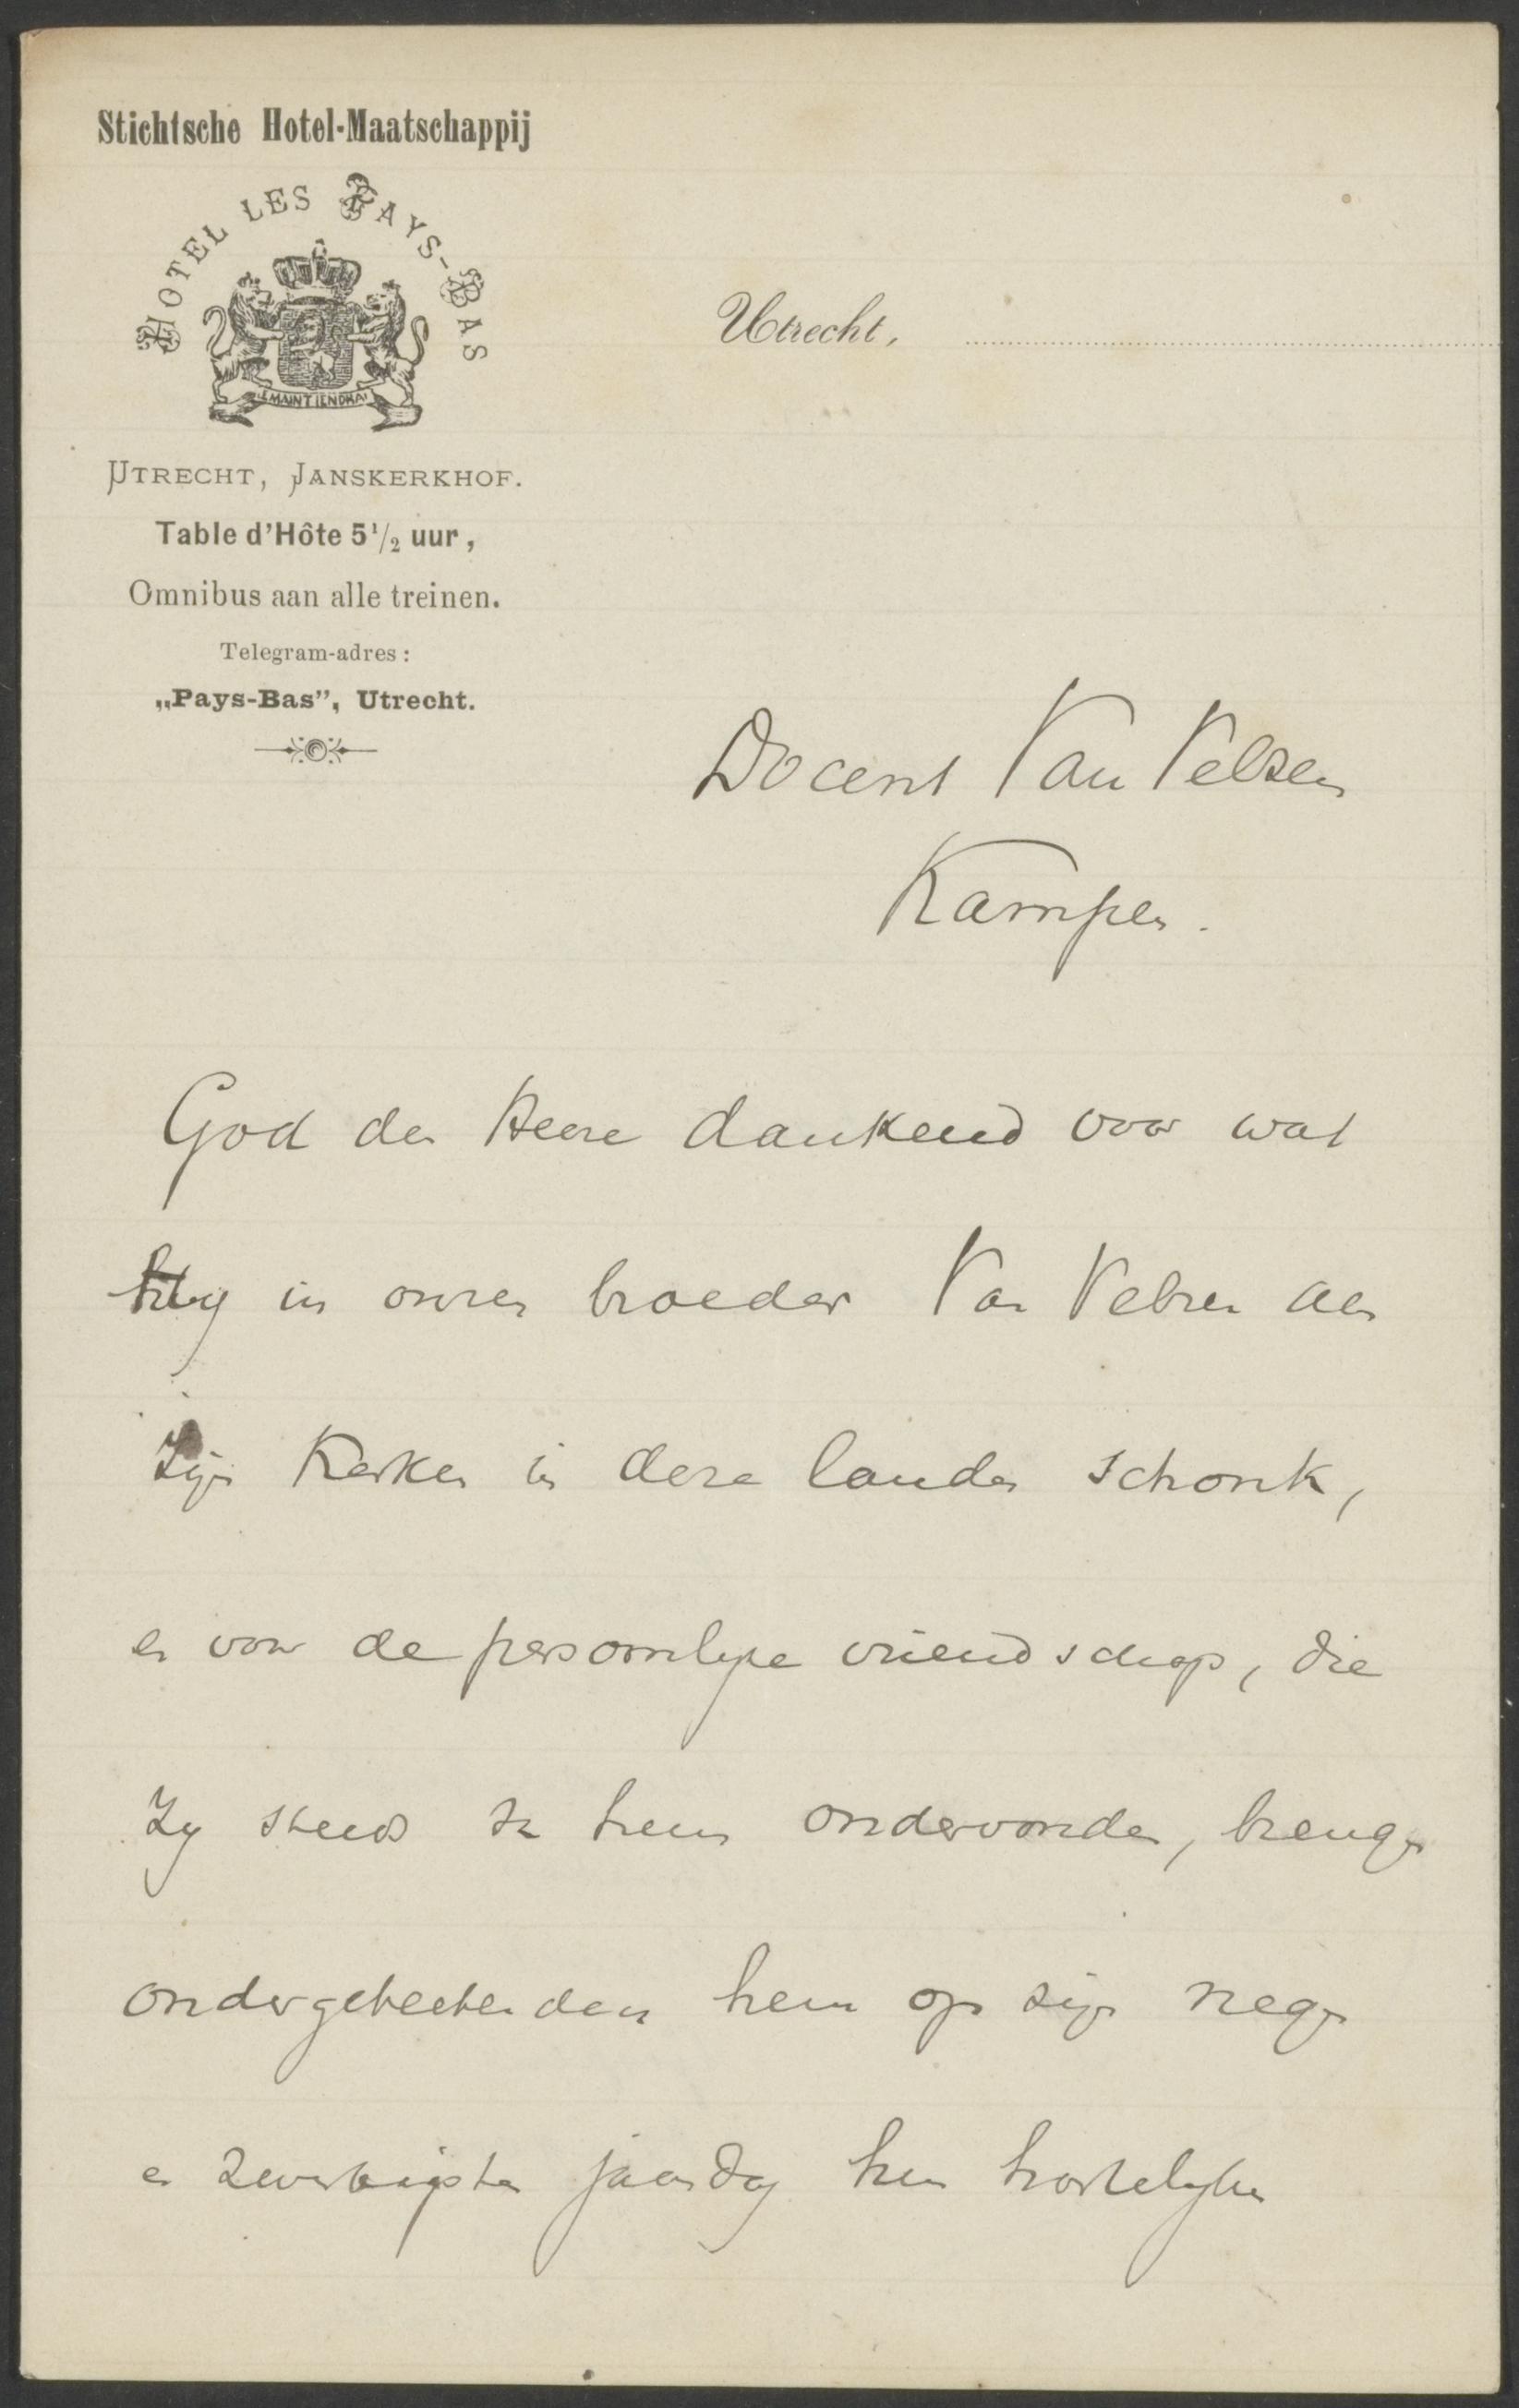 Stichtsche Hotel-Maatschappij
HOTEL LES PAYS-BAS
JE MAINTIENDRAI
Utrecht,
UTRECHT, JANSKERKHOF.
Table d'Hôte 5 1/2 uur,
Omnibus aan alle treinen.
Telegram-adres:
„Pays-Bas”, Utrecht.
Docent Van Velzen
Kampen.
God den Heere dankend voor wat
Hij in onzen broeder Van Velzen aan
Zijn Kerken in deze landen schonk,
en voor de persoonlijke vriendschap, die
zij steeds in hem ondervonden, brengen
ondergeteekenden hem op zijn negen
en zeventigsten jaardag hun hartelijken